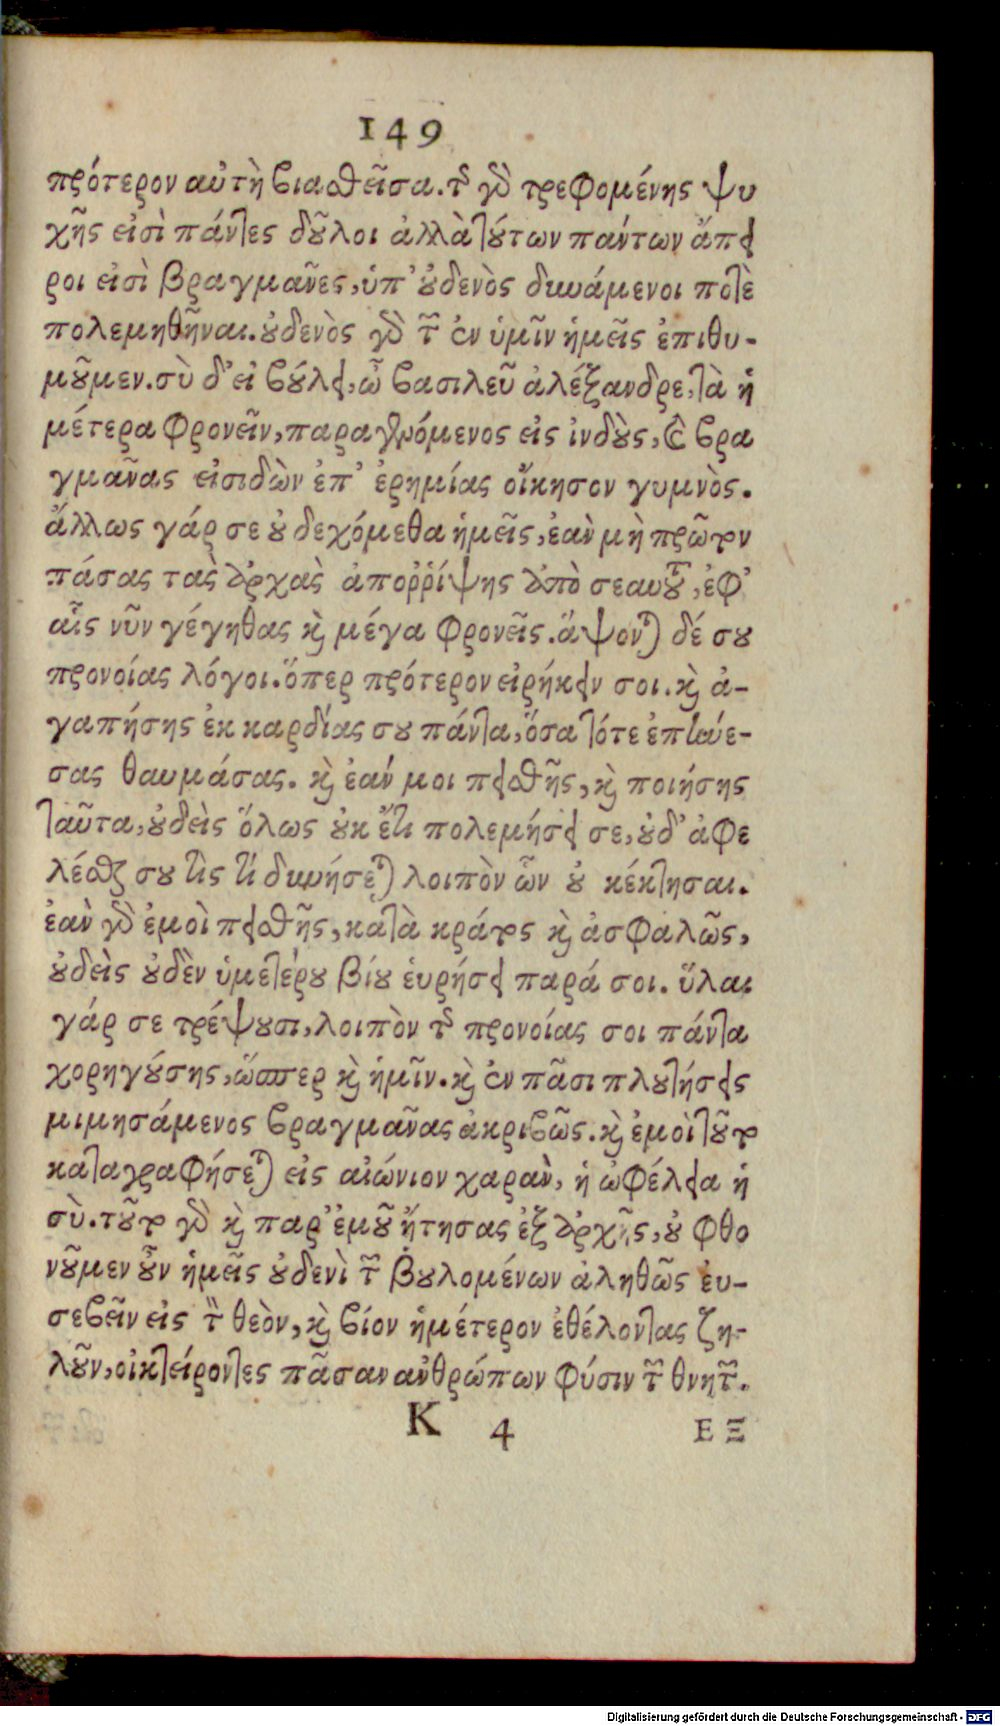 149
πρότερον αὐτὴ βιαθεῖσα. τῆς γὰρ τρεφομένης ψυ
χῆς εἰσὶ πάντες δοῦλοι ἀλλὰ τούτων πάντων ἄπει
ροι εἰσὶ βραγμᾶνες, ὑπ' οὐδενὸς δυνάμενοι ποτὲ
πολεμηθῆναι. οὐδενὸς γὰρ τῶν ἐν ὑμῖν ἡμεῖς ἐπιθυ-
μοῦμεν. σὺ δ' εἰ βούλει, ὦ βασιλεῦ ἀλέξανδρε, τὰ ἡ
μέτερα φρονεῖν, παραγενόμενος εἰς ἰνδοὺς, καὶ βρα
γμᾶνας εἰσιδὼν ἐπ' ἐρημίας οἴκησον γυμνὸς.
ἄλλως γάρ σε οὐ δεχόμεθα ἡμεῖς, ἐὰν μὴ πρῶτον
πάσας τὰς ἀρχὰς ἀποῤῥίψης ἀπὸ σεαυτοῦ, ἐφ'
αἷς νῦν γέγηθας καὶ μέγα φρονεῖς. ἅψονται δέ σου
προνοίας λόγοι. ὅπερ πρότερον εἰρήκειν σοι. καὶ ἀ-
γαπήσης ἐκ καρδίας σου πάντα, ὅσα τότε ἐπῄνε-
σας θαυμάσας. καὶ ἐάν μοι πειθῆς, καὶ ποιήσης
ταῦτα, οὐδεὶς ὅλως οὐκ ἔτι πολεμήσει σε, οὐδ' ἀφε
λέσθαι σου τὶς τί δυνήσεται λοιπὸν ὧν οὐ κέκτησαι.
ἐὰν γὰρ ἐμοὶ πειθῆς, κατὰ κράτος καὶ ἀσφαλῶς,
οὐδεὶς οὐδὲν ὑμετέρου βίου εὑρήσει παρά σοι. ὕλαι
γάρ σε τρέψουσι, λοιπὸν τῆς προνοίας σοι πάντα
χορηγούσης, ὥσπερ καὶ ἡμῖν. καὶ ἐν πᾶσι πλουτήσεις
μιμησάμενος βραγμᾶνας ἀκριβῶς. καὶ ἐμοὶ τοῦτο
καταγραφήσεται εἰς αἰώνιον χαρὰν, ἡ ὠφέλεια ἡ
σὺ. τοῦτο γὰρ καὶ παρ' ἐμοῦ ᾔτησας ἐξ ἀρχῆς, οὐ φθο
νοῦμεν οὖν ἡμεῖς οὐδενὶ τῶν βουλομένων ἀληθῶς εὐ-
σεβεῖν εἰς τὸν θεὸν, καὶ βίον ἡμέτερον ἐθέλοντας ζη-
λοῦν, οἰκτείροντες πᾶσαν ἀνθρώπων φύσιν τῶν θνητῶν.
K 4 ΕΞ
Digitalisierung gefördert durch die Deutsche Forschungsgemeinschaft - DFG